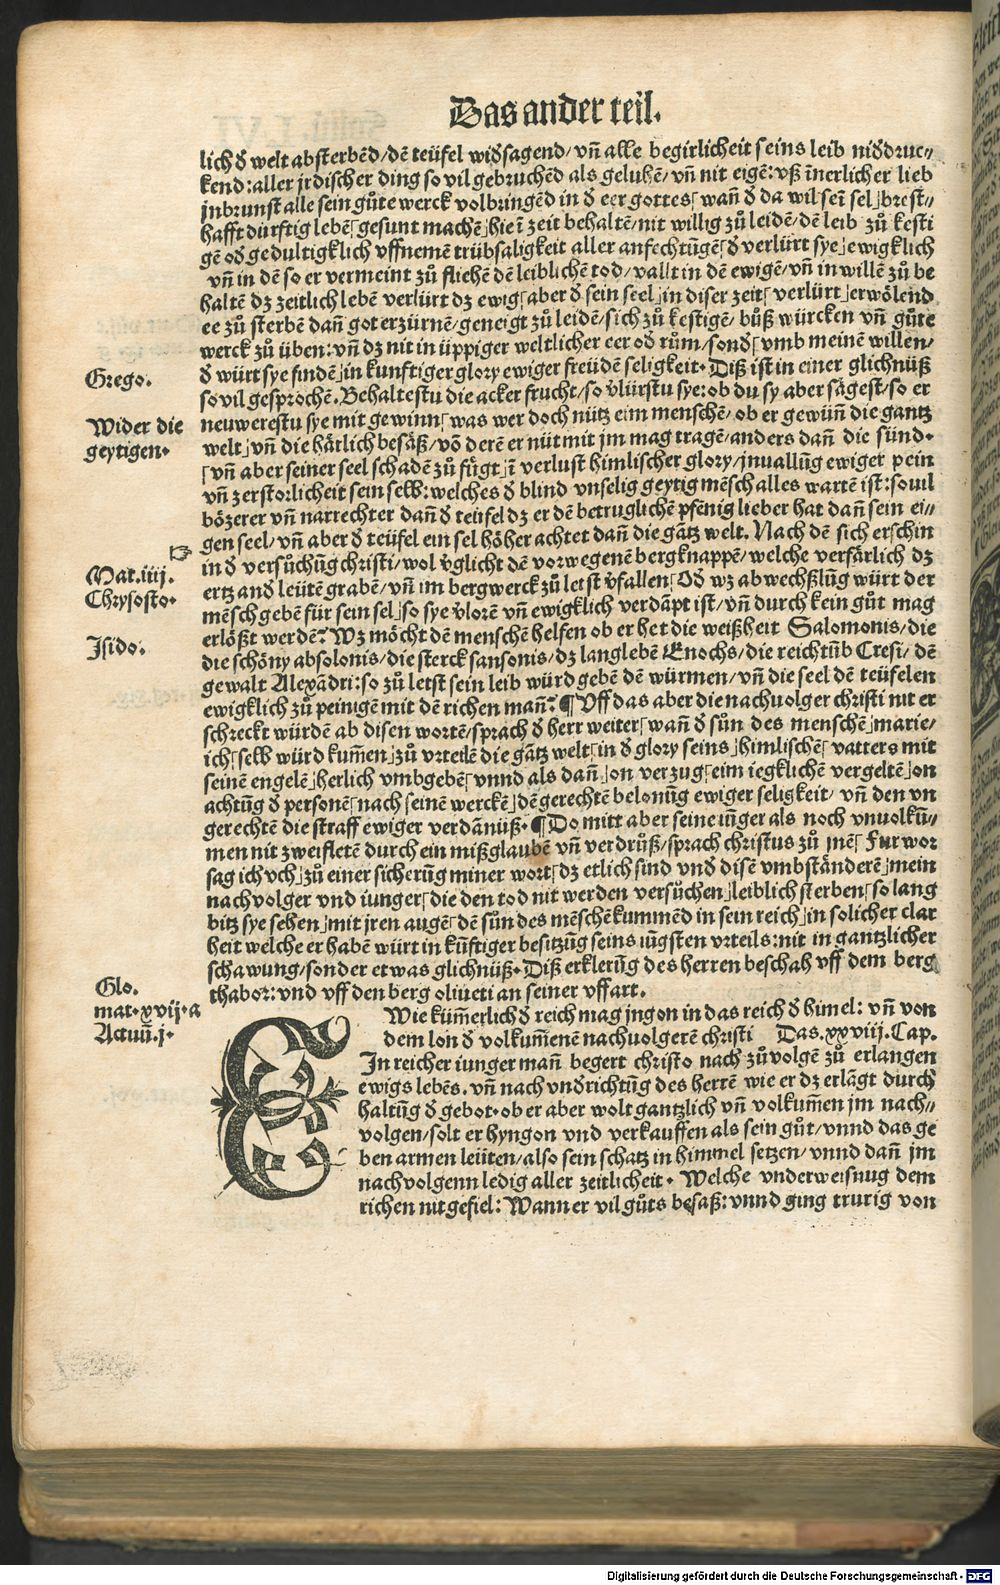 Das ander teil.
lich đ welt absterbēd/ dē teüfel wiđsagend/ vñ alle begirlicheit seins leib niđdruc⸗
kend: aller jrdischer ding so vil gebruchēd als geluhē/ vñ nit eigē: vß īnerlicher lieb
jnbrunst alle sein gůte werck volbringēd in đ eer gottes⌈ wañ đ da wil sein sel⌋ brest⸗
hafft durftig lebē⌈ gesunt machē⌋ hie ī zeit behaltē⸗ nit willig zů leidē/ dē leib zů kesti
gē ođ gedultigklich vffnemē trübsaligkeit aller anfechtūgē⌈ đ verlürt sye⌋ ewigklich
vñ in dē so er vermeint zů fliehē dē leiblichē tod/ vallt in dē ewigē/ vñ in willē zů be
haltē dz zeitlich lebē verlürt dz ewig⌈ aber đ sein seel⌋ in diser zeit⌈ verlürt⌋ erwölend
ee zů sterbē dañ got erzürnē/ geneigt zů leidē/ sich zů kestigē/ bůß würcken vñ gůte
werck zů üben: vñ dz nit in üppiger weltlicher eer ođ rům/ sonđ⌈ vmb meinē willen/
đ würt sye findē⌋ in kunftiger glory ewiger freüdē seligkeit. Diß ist in einer glichnüß
Grego.
so vil gesprochē. Behaltestu die acker frucht/ so v̉lürstu sye: ob du sy aber sägest/ so er
Wider die
neuwerestu sye mit gewinn⌈ was wer doch nütz eim menschē/ ob er gewün̄ die gantz
geytigen.
welt⌋ vñ die härtlich besäß/ vō derē er nüt mit jm mag tragē/ anders dañ die sünd.
⌈ vñ aber seiner seel schadē zů fůgt⌋ ī verlust himlischer glory/ jnuallūg ewiger pein
vñ zerstorlicheit sein selb: welches đ blind vnselig geytig mēsch alles wartē ist: so vil
bözerer vñ narrechter dañ đ teüfel dz er dē betruglichē pfēnig lieber hat dañ sein ei⸗
gen seel/ vñ aber đ teüfel ein sel höher achtet dañ die gātz welt. Nach dē sich erschin
☞
in đ versůchūg christi/ wol v̉glicht dē vorwegenē bergknappē/ welche verfärlich dz
Mat.iiij.
ertz anđ leütē grabē/ vñ im bergwerck zů letst v̉fallen⌈ Ođ wz abwechßlūg würt der
Chrysosto.
mēsch gebē für sein sel⌋ so sye v̉lorē vñ ewigklich verdāpt ist/ vñ durch kein gůt mag
erlößt werdē? Wz möcht dē menschē helfen ob er het die weißheit Salomonis/ die
Isido.
die schöny absolonis/ die sterck sansonis/ dz langlebē Enochs/ die reichtůb Cresi/ dē
gewalt Alexādri: so zů letst sein leib würd gebē dē würmen/ vñ die seel dē teüfelen
ewigklich zů peinigē mit dē richen mañ? ¶ Vff das aber die nachuolger christi nit er
schreckt würdē ab disen wortē/ sprach đ herr weiter⌈ wañ đ sůn des menschē⌋ marie/
ich⌈ selb würd kum̄en⌋ zů vrteilē die gātz welt⌈ in đ glory seins⌋ himlischē⌈ vatters mit
seinē engelē⌋ herlich vmbgebē⌈ vnnd als dañ⌋ on verzug⌈ eim iegklichē vergeltē⌋ on
achtūg đ personē⌈ nach seinē werckē⌋ dē gerechtē belonūg ewiger seligkeit/ vñ den vn
gerechtē die straff ewiger verdānüß. ¶ Do mitt aber seine iūger als noch vnuolkū⸗
men nit zweifletē durch ein mißglaubē vñ verdrůß/ sprach christus zů jnē⌈ Fur wor
sag ich vch⌋ zů einer sicherūg miner wort⌈ dz etlich sind vnđ disē vmbständerē⌋ mein
nachvolger vnd iunger⌈ die den tod nit werden versůchen⌋ leiblich sterben⌈ so lang
bitz sye sehen⌋ mit jren augē⌈ dē sůn des mēschē kummēd in sein reich⌋ in solicher clar
heit welche er habē würt in kūftiger besitzūg seins iūgsten vrteils: nit in gantzlicher
schawung/ sonder etwas glichnüß. Diß erklerūg des herren beschah vff dem berg
Glo.
mat.xvij.a
Actuū.j.
thabor: vnd vff den berg oliueti an seiner vffart.
Wie küm̄erlich đ reich mag jngon in das reich đ himel: vñ von
dem lon đ volkum̄enē nachuolgerē christi Das.xxviij.Cap.
EIn reicher iunger mañ begert christo nach zů volgē zů erlangen
ewigs lebēs. vñ nach vnđrichtūg des herrē wie er dz erlāgt durch
haltūg đ gebot. ob er aber wolt gantzlich vñ volkum̄en jm nach⸗
volgen/ solt er hyngon vnd verkauffen als sein gůt/ vnnd das ge
ben armen leüten/ also sein schatz in himmel setzen/ vnnd dañ jm
nachvolgenn ledig aller zeitlicheit. Welche vnderweisnug dem
richen nit gefiel: Wann er vil gůts besaß: vnnd ging trurig von
Digitalisierung gefördert durch die Deutsche Forschungsgemeinschaft - DFG